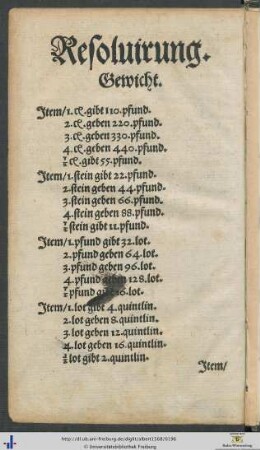 Resoluirung.
Gewicht.
Item/1.cẜ.gibt 110.pfund.
2.cẜ.geben 220.pfund.
3.cẜ.geben 330.pfund.
4.cẜ.geben 440.pfund.
½ cẜ.gibt 55.pfund.
Item/1.stein gibt 22.pfund.
2.stein geben 44.pfund.
3.stein geben 66.pfund.
4.stein geben 88.pfund.
½ stein gibt 11.pfund.
Item/1.pfund gibt 32.lot.
2.pfund geben 64.lot.
3.pfund geben 96.lot.
4.pfund geben 128.lot.
½ pfund gibt 16.lot.
Item/1.lot gibt 4.quintlin.
2.lot geben 8.quintlin.
3.lot geben 12.quintlin.
4.lot geben 16.quintlin.
½ lot gibt 2.quintlin.
Item/
© Universitätsbibliothek Freiburg
Baden-Württemberg